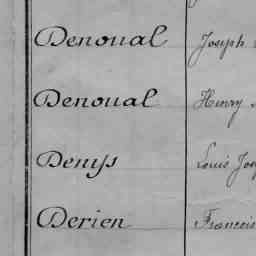 Denoual Joseph
Denoual Henry
Denys Louis
Derien Francois